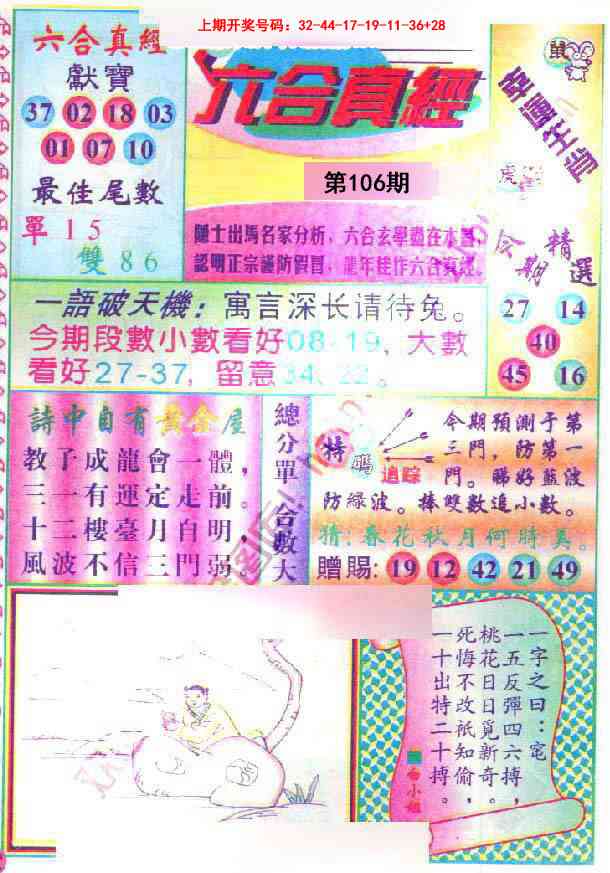 上期开奖号码：32-44-17-19-11-36+28
六合真經
獻寶
37 02 18 03
01 07 10
最佳尾數
單 1 5
雙 8 6
六合真經
第106期
隱士出馬名家分析，六合玄學盡在本圖，
認明正宗謹防假冒，龍年佳作六合真經。
鼠
幸運生肖
虎
今期精選
27 14
40
45 16
一語破天機：寓言深长请待兔。
今期段數小數看好08-19, 大數
看好27-37, 留意34、22。
詩中自有黃金屋
教子成龍會一體，
三一有運定走前。
十二樓臺月自明，
風波不信三門弱。
總分單 合數大
特碼
追踪
今期預測于第
三門，防第一
門。睇好藍波
防綠波。捧雙數追小數。
猜：春花秋月何時美。
贈賜：19 12 42 21 49
一字之曰：寵
一五反彈四六搏，
桃花日日覓新奇。
死悔不改祇知偷，
一十出特二十搏。
白小姐